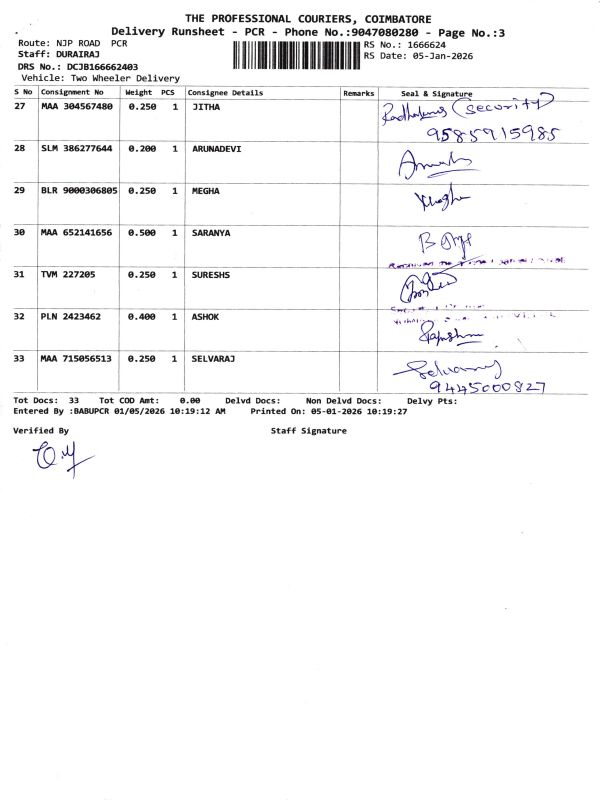 THE PROFESSIONAL COURIERS, COIMBATORE
Delivery Runsheet - PCR - Phone No.:9047080280 - Page No.:3
Route: NJP ROAD PCR
RS No.: 1666624
Staff: DURAIRAJ
RS Date: 05-Jan-2026
DRS No.: DCJB166662403
Vehicle: Two Wheeler Delivery
S No Consignment No Weight PCS Consignee Details Remarks Seal & Signature
27 MAA 304567480 0.250 1 JITHA (security)
9585915985
28 SLM 386277644 0.200 1 ARUNADEVI
29 BLR 9000306805 0.250 1 MEGHA Megha
30 MAA 652141656 0.500 1 SARANYA
31 TVM 227205 0.250 1 SURESHS
32 PLN 2423462 0.400 1 ASHOK
33 MAA 715056513 0.250 1 SELVARAJ Selvaraj
9445000827
Tot Docs: 33 Tot COD Amt: 0.00 Delvd Docs: Non Delvd Docs: Delvy Pts:
Entered By :BABUPCR 01/05/2026 10:19:12 AM Printed On: 05-01-2026 10:19:27
Verified By Staff Signature